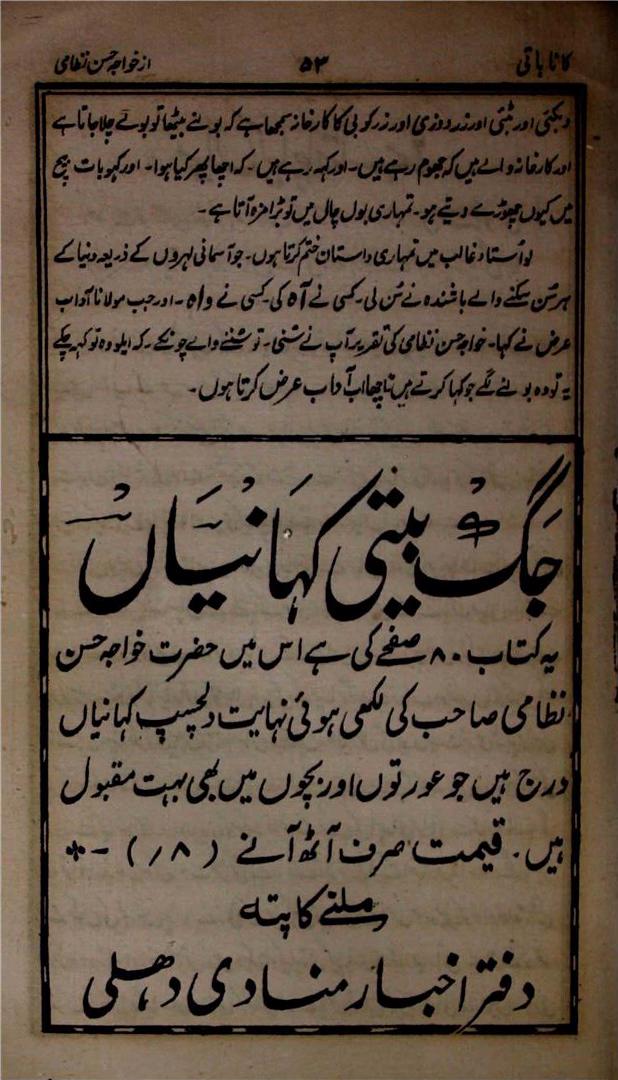 کانا باتی ۵۳ از خواجہ حسن نظامی
دبکئی اور بٹئی اور زردوزی اور زرکوبی کا کارخانہ سمجھا ہے کہ بولنے بیٹھا تو بولے چلا جاتا ہے
اور کارخانہ والے ہیں کہ جھوم رہے ہیں۔ اور کہہ رہے ہیں۔ کہ اچھا پھر کیا ہوا۔ اور کہو بات بیچ
میں کیوں چھوڑے دیتے ہو۔ تمہاری بول چال میں تو بڑا مزہ آتا ہے۔
لو اُستاد غالب میں تمہاری داستان ختم کرتا ہوں۔ جو آسمانی لہروں کے ذریعہ دنیا کے
ہر سُن سکنے والے باشندہ نے سُن لی۔ کسی نے آہ کی۔ کسی نے واہ۔ اور جب مولانا آداب
عرض نے کہا۔ خواجہ حسن نظامی کی تقریر آپ نے سُنی۔ تو سُننے والے چونکے۔ کہ ایلو وہ تو کہہ چکے
یہ تو وہ بولنے لگے جو کہا کرتے ہیں نا اچھا اب آداب عرض کرتا ہوں۔
جَگ بیتی کہانیاں
یہ کتاب ۸۰ صفحے کی ہے اس میں حضرت خواجہ حسن
نظامی صاحب کی لکھی ہوئی نہایت دلچسپ کہانیاں
درج ہیں جو عورتوں اور بچوں میں بھی بہت مقبول
ہیں۔ قیمت صرف آٹھ آنے (۸؍) -*
ملنے کا پتہ
دفتر اخبار منادی دھلی